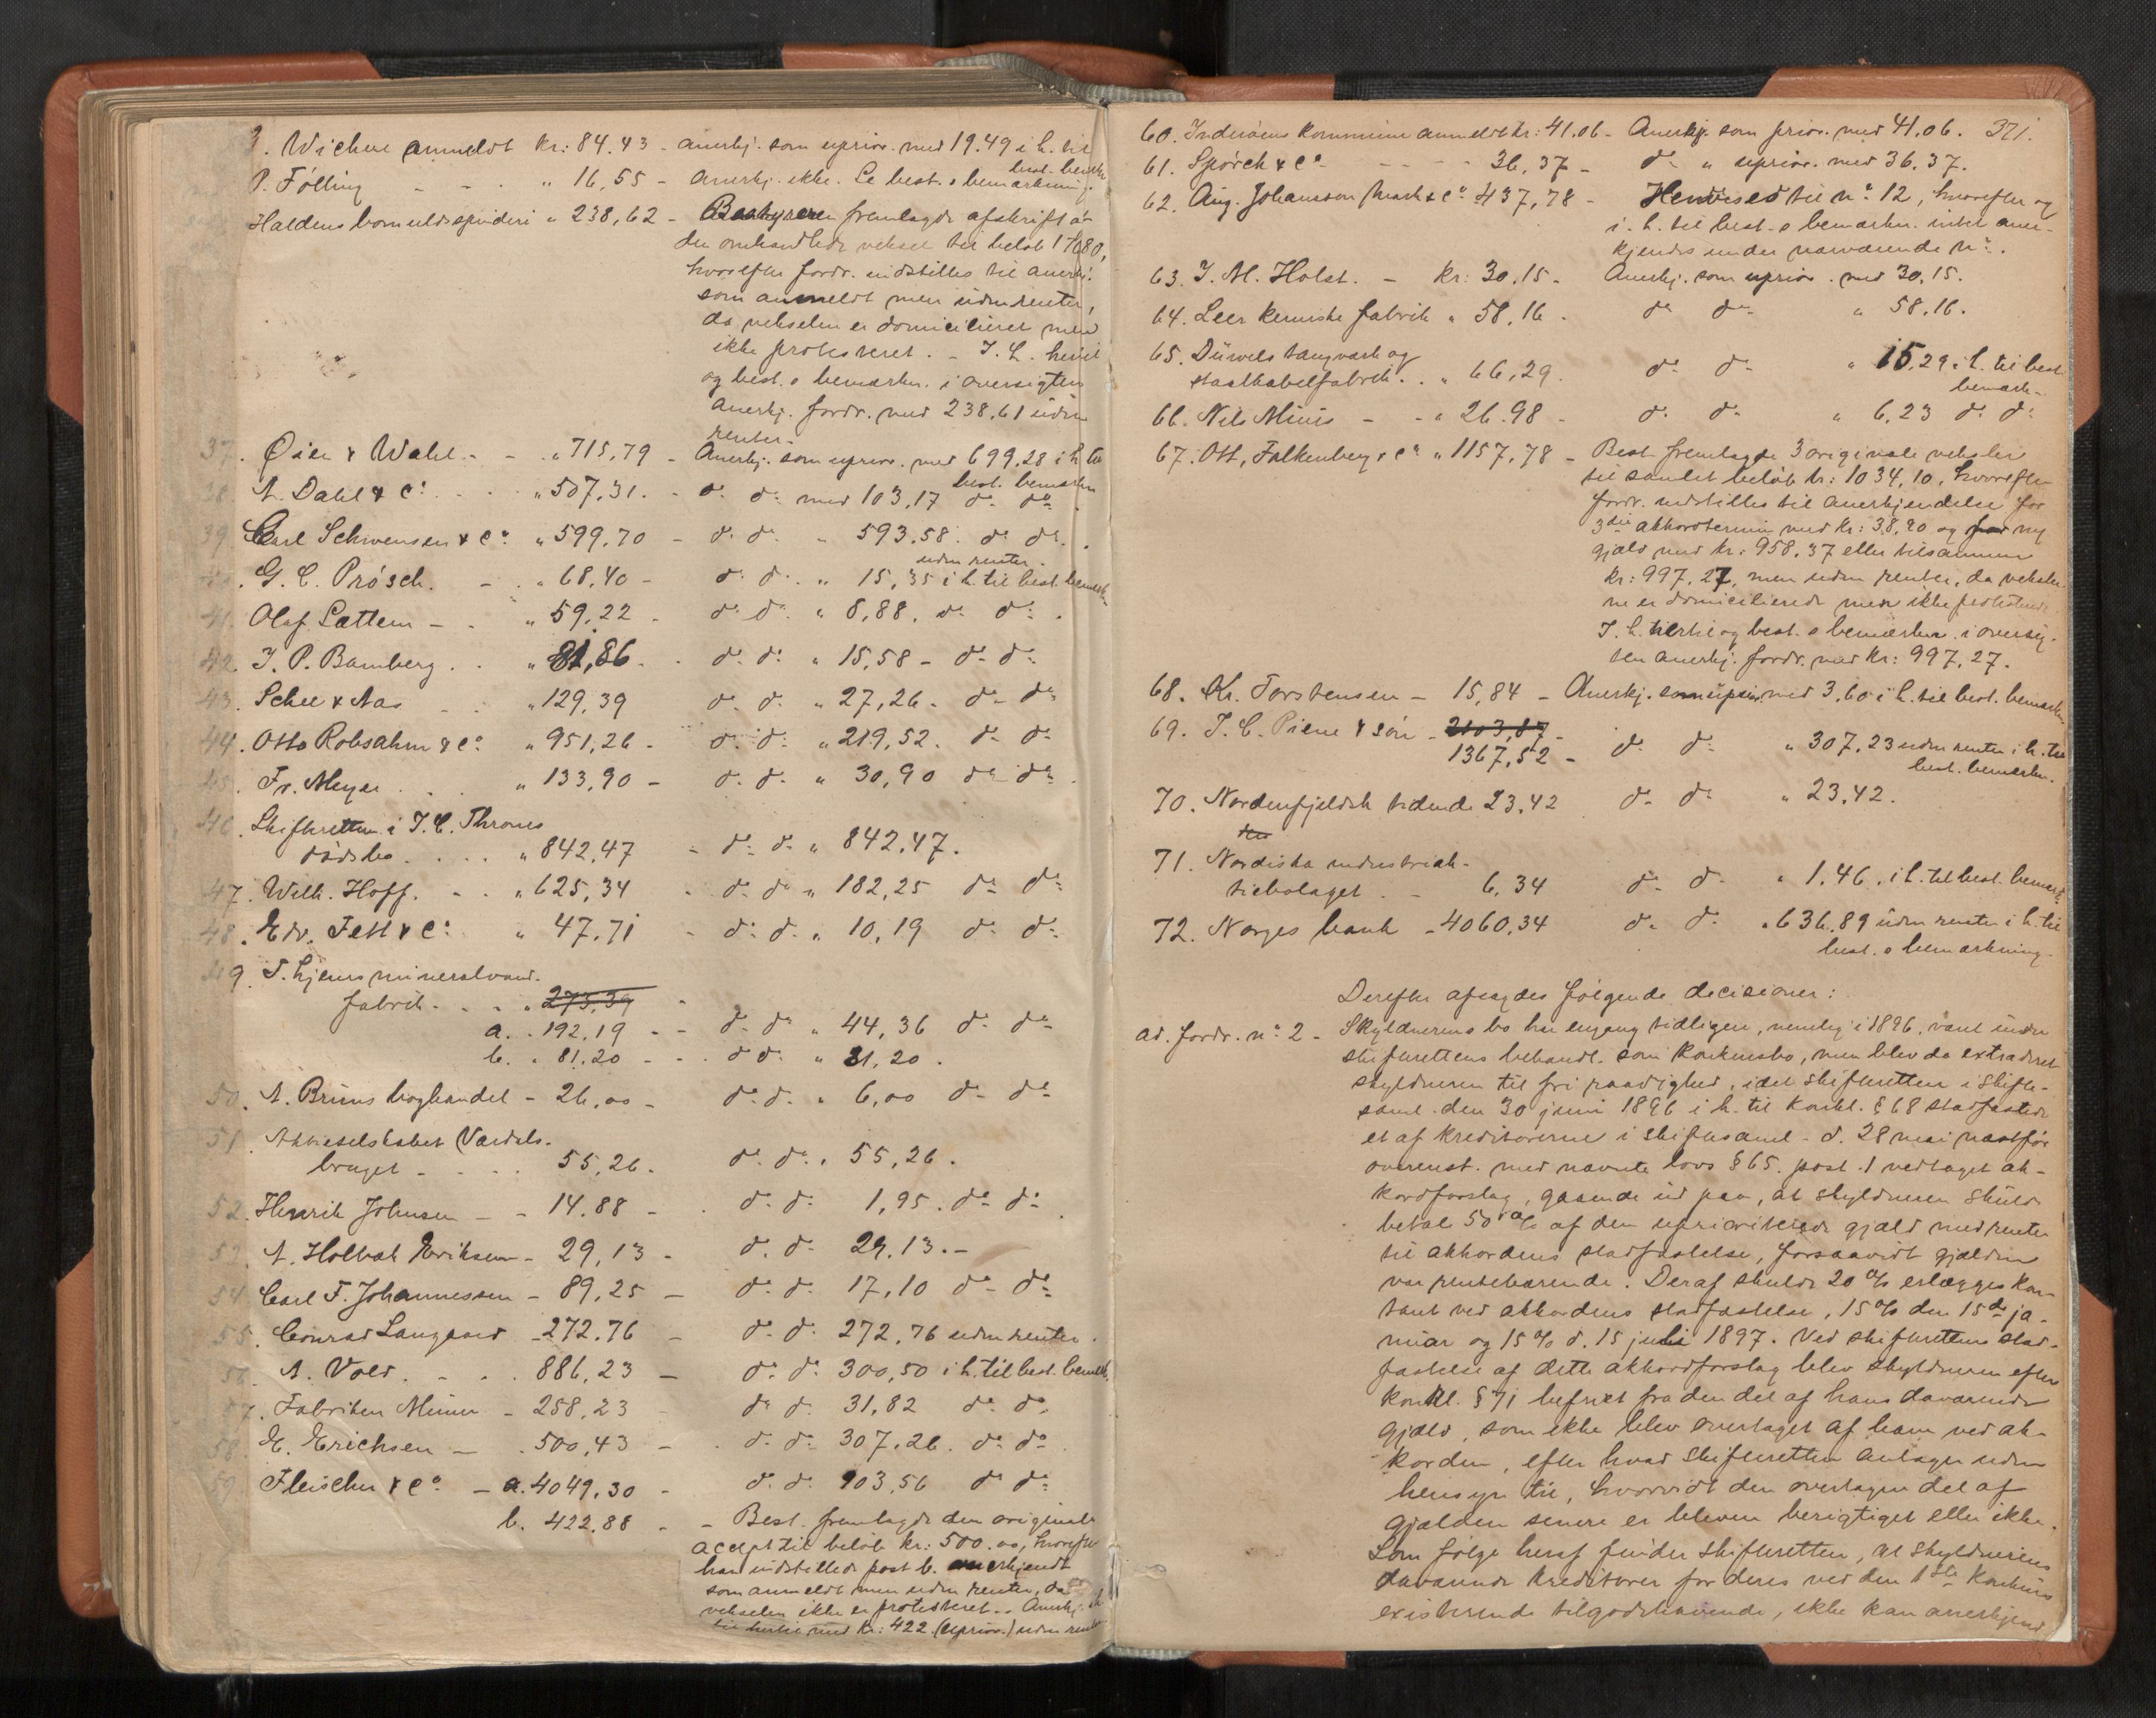 . Wichne anmeldt kr: 84.43 - anerkj. som uprior. med 19.49 i h. til
best. bemærkn
P. Følling - - . " 16,55 - anerkj. ikke. Se best.s bemærkning.
Haldens bomuldsspinderi " 238,62 - Bestyreren fremlagde afskrift af
den omhandlede veksel til beløb
hvorefter fordr. indstilles til anerkj.
som anmeldt men uden renter,
da vekselen er domicilieret men
ikke protesteret. - I. h. hertil
og best.s bemærkn. i oversigten
anerkj. fordr. med 238.61 uden
renter.
37. Øien & Wahl. - - . " 715,79 - Anerkj. som uprior. med 699,28 i h. til
best. bemærkn
38. A. Dahl & Co. . . . " 507,31. - do. do. med 103,17 do. do.
39. Carl Schwensen & Co. " 599,70 - do. do. " 593.58. do. do.
uden renter.
40. G. C. Prösch. - . " 68,40 - do. do. " 15,35 i h. til best. bemærkn
41. Olaf Sættem - . " 59,22 - do. do. " 8,88. do. do.
42. J. P. Bamberg . . " 81,86. - do. do. " 15,58 - do. do.
43. Schee & Aas . . " 129,39 do. do. " 27,26. do. do.
44. Otto Robsahm & Co. " 951,26 - do. do. " 219,52. do. do.
45. Fr. Meyer . . . " 133,90 - do. do. " 30,90 do. do.
46. Skifteretten i J. C. Thrones
dødsbo . . . . " 842,47 - do. do. " 842.47.
47. Wilh. Hoff. - . . " 625,34 - do. do. " 182,25 do. do.
48. Edv. Fett & Co. " 47,71 - do. do. " 10,19 do. do.
49. T.hjems mineralvand-
fabrik . . . " 273,39 -
a. . 192,19 - - do. do. " 44,36 do. do.
b. " 81.20 - - . do. do. " 81,20.
50. A. Bruns boghandel - 26,00 - do. do. " 6,00 do. do.
51. Aktieselskabet Værdals-
bruget - . . . 55,26. do. do. " 55,26.
52. Henrik Johnsen - - 14.88 - . do. do. 1,95. do. do.
53. A. Holbæk Eriksen - 29,13 - do. do. 29,13. -
54. Carl F. Johannessen - 89,25 - do. do. 17,10 do. do.
55. Conrad Langaard - 272.76 - do. do. 272,76 uden renter.
56. A. Vold. . - . . 886,23 - do. do. 300,50 i h. til best. bemærk.
57. Fabriken Mimer - 258,23 - do. do. 31,82 do. do.
58. E. Erichsen - . 500,43 - . do. do. 307.26. do. do.
59. Fleischer & Co. - a. 4049,30 - do. do. 903,56 do. do.
b. 422,88 - - Best. fremlagde den originale
accept til beløb kr: 500.00, hvorefter
han indstillede post b. anerkjendt
som anmeldt men uden renter, da
vekselen ikke er protesteret. - Anerkj.
til hertil med kr: 422. (uprior.) uden renter
60. Inderøens kommune anmeldt kr: 41.06 - Anerkj. som prior. med 41,06. 371.
61. Spörck & Co. - - - - 36,37 - do. " uprior. med 36.37.
62. Aug. Johanson & Co. 437,78 - Henvises til no. 12, hvorefter og
i. h. til best.s bemærkn. intet aner-
kjendes under nærværende no.
63. J. M. Holst. - kr: 30,15 - Anerkj. som uprior. med 30,15.
64. Leer kemiske fabrik " 58,16 . do. do. " 58,16.
65. Düwels tougværk og
staalkabelfabrik . . " 66,29. do. do. " 15,29 i h. til best.
bemærk.
66. Nils - - " 26.98 - do. do. " 6,23 do. do.
67. Ott, Falkenberg & Co. " 1157,78 - Best. fremlagde 3 originale veksler
til samlet beløb kr: 1034,10, hvorefter
fordr. indstilles til anerkjendelse for
3die akkordtermin med kr: 38,90 og for ny
gjæld med kr: 958,37 eller tilsammen
kr: 997,27, men uden renter, da veksler-
ne er domicilierede men ikke protesterede.
I. h. hertil og best.s bemærkn. i oversig-
ten anerkj. fordr. med kr: 997,27.
68. Kr. Torstensen - 15,84 - Anerkj. som uprior. med 3,60 i h. til best. bemærkn.
69. J. C. Piene & søn - 2103,87 -
1367,52 - do. do. " 307,23 uden renter i h. til
best. bemærkn.
70. Nordenfjeldsk tidende 23,42 do. do. " 23,42.
71. Nordiska industriak-
tiebolaget . - 6,34 do. do. " 1,46. i h. til best. bemærk.
72. Norges bank - 4060,34 do. do. " 636,89 uden renter i h. til
best.s bemærkning.
Derefter afsagdes følgende decisioner:
ad. fordr. no. 2 - Skyldnerens bo har engang tidligere, nemlig i 1896, været under
skifterettens behandl. som konkursbo, men blev da extraderet
skyldneren til fri raadighed, idet skifteretten i skifte-
saml. den 30 juni 1896 i h. til konkl. § 68 stadfæstede
et af kreditorerne i skiftesaml. d. 28 mai næstfør
overenst. med nævnte lovs § 65. post. 1 vedtaget ak-
kordforslag, gaaende ud paa, at skyldneren skulde
betale 50 % af den uprioriterede gjæld med renter
til akkordens stadfæstelse, forsaavidt gjælden
var rentebærende. Deraf skulde 20 % erlægges kon-
tant ved akkordens stadfæstelse, 15 % den 15de ja-
nuar og 15 % d. 15 juli 1897. Ved skifterettens stad-
fæstelse af dette akkordforslag blev skyldneren efter
konkl. § 71 befriet fra den del af hans daværende
gjæld, som ikke blev overtaget af ham ved ak-
korden, efter hvad skifteretten antager uden
hensyn til, hvorvidt den overtagne del af
gjælden senere er bleven berigtiget eller ikke.
Som følge heraf finder skifteretten, at skyldnerens
daværende kreditorer for deres ved den 1ste konkurs
existerende tilgodehavende, ikke kan anerkjendes